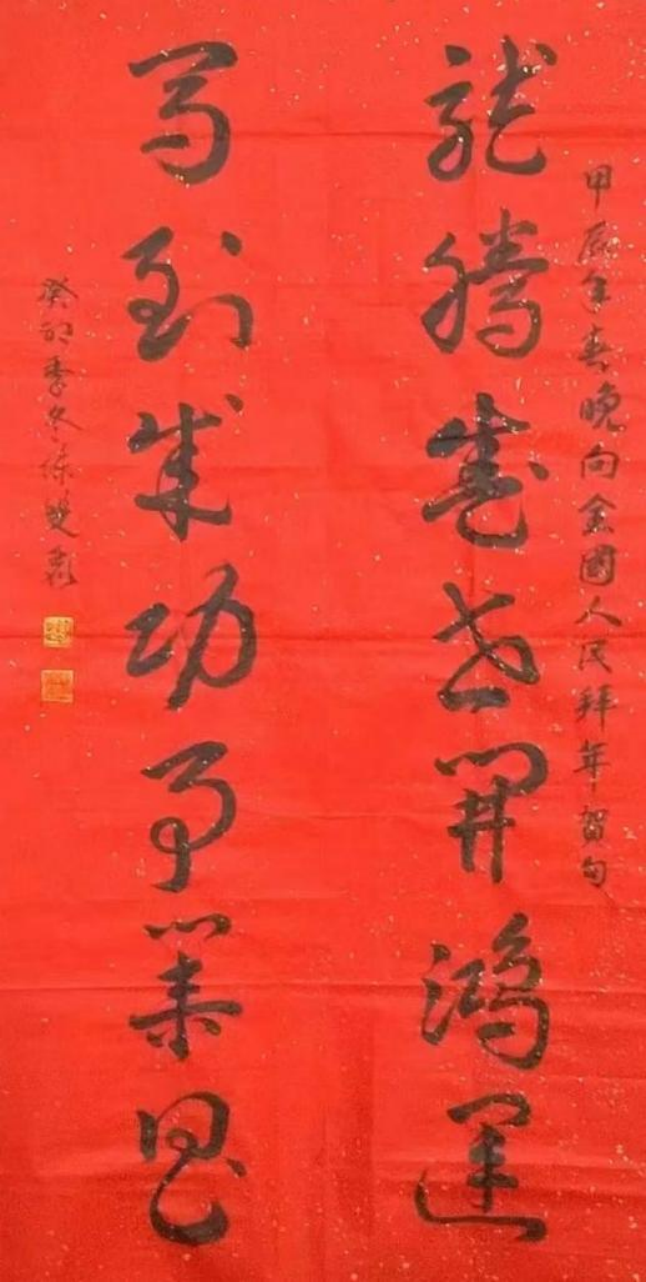 甲辰年春晚向全國人民拜年賀句
龍騰盛世開鴻運
馬到成功事業昌
癸卯季冬徐雙喜